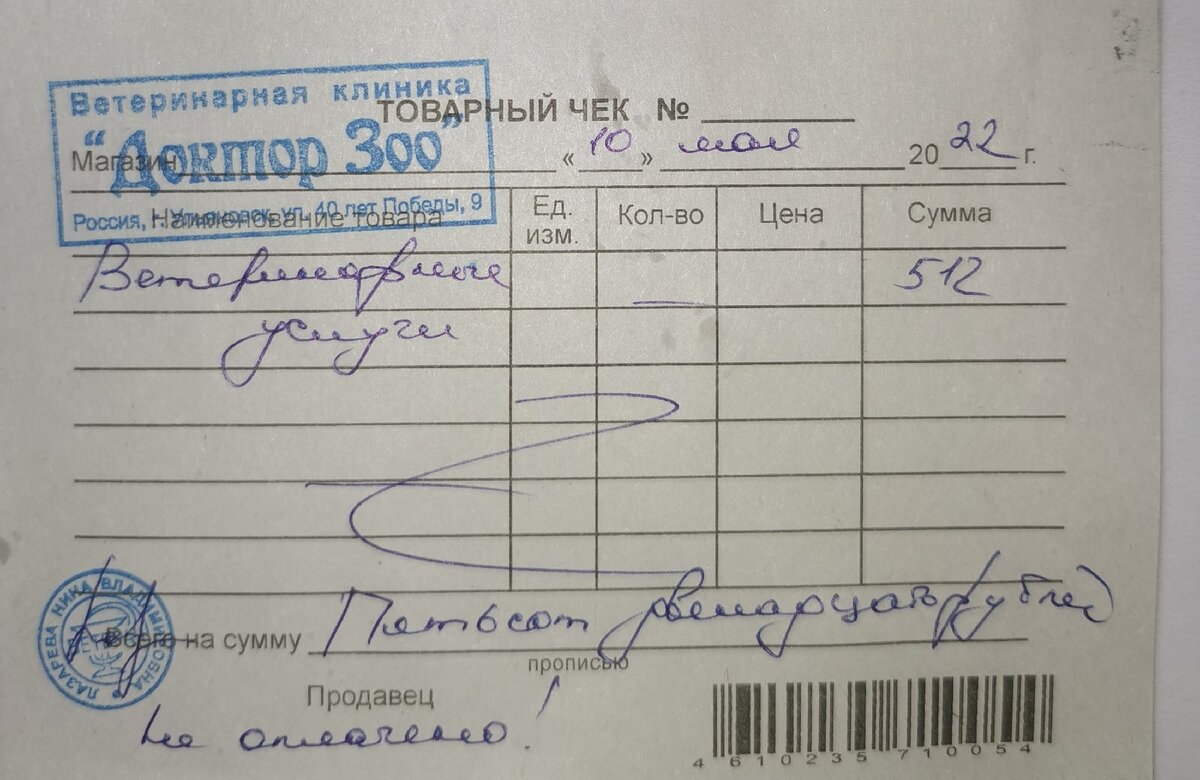 Ветеринарная клиника
"Доктор Зоо"
Россия, г. Ульяновск, ул. 40 лет Победы, 9
ТОВАРНЫЙ ЧЕК №
Магазин «10» мая 2022 г.
Наименование товара Ед. изм. Кол-во Цена Сумма
Ветеринарные 512
услуги
Всего на сумму Пятьсот двенадцать рублей
прописью
Продавец
Не оплачено!
ЛАЗАРЕВА НИКА ВЛАДИМИРОВНА
4 610235 710054